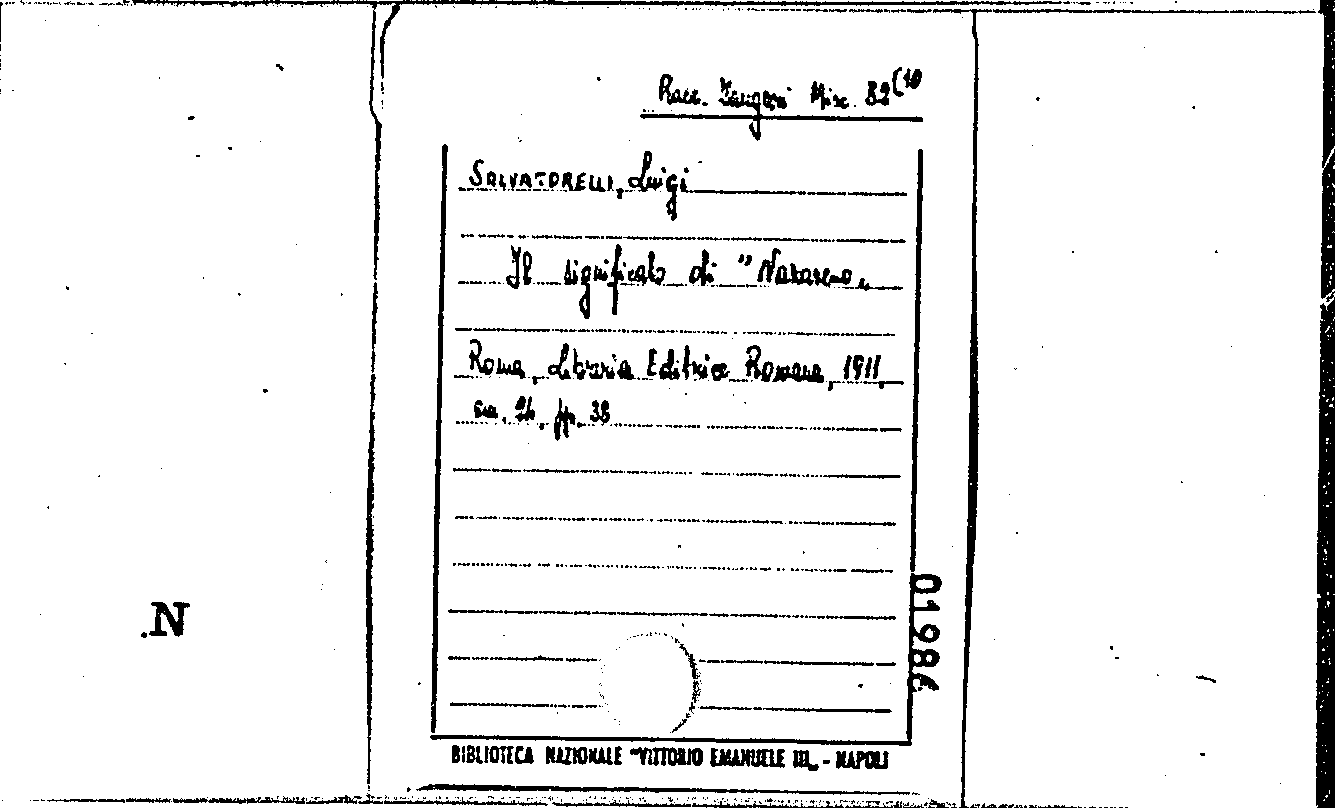 Racc. Zangari Misc. 82(10
SALVATORELLI, Luigi
Il significato di "Nazareno„
Roma, Libreria Editrice Romana, 1911,
cm. 24, pp. 38
01986
.N
BIBLIOTECA NAZIONALE "VITTORIO EMANUELE III„ - NAPOLI